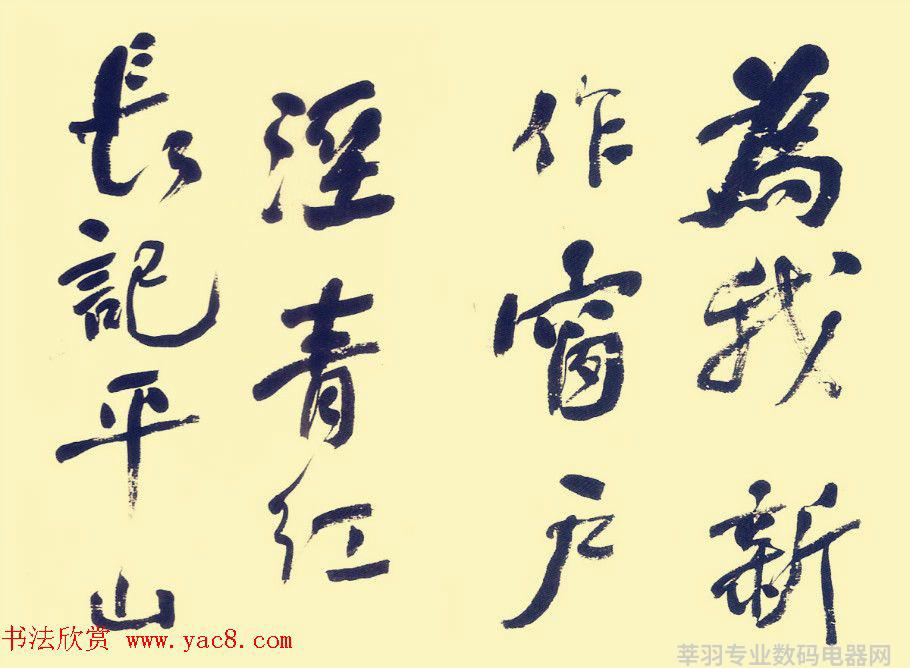 為我新
作窗户
溼青红
長記平山
书法欣赏 www.yac8.com
莘羽专业数码电器网